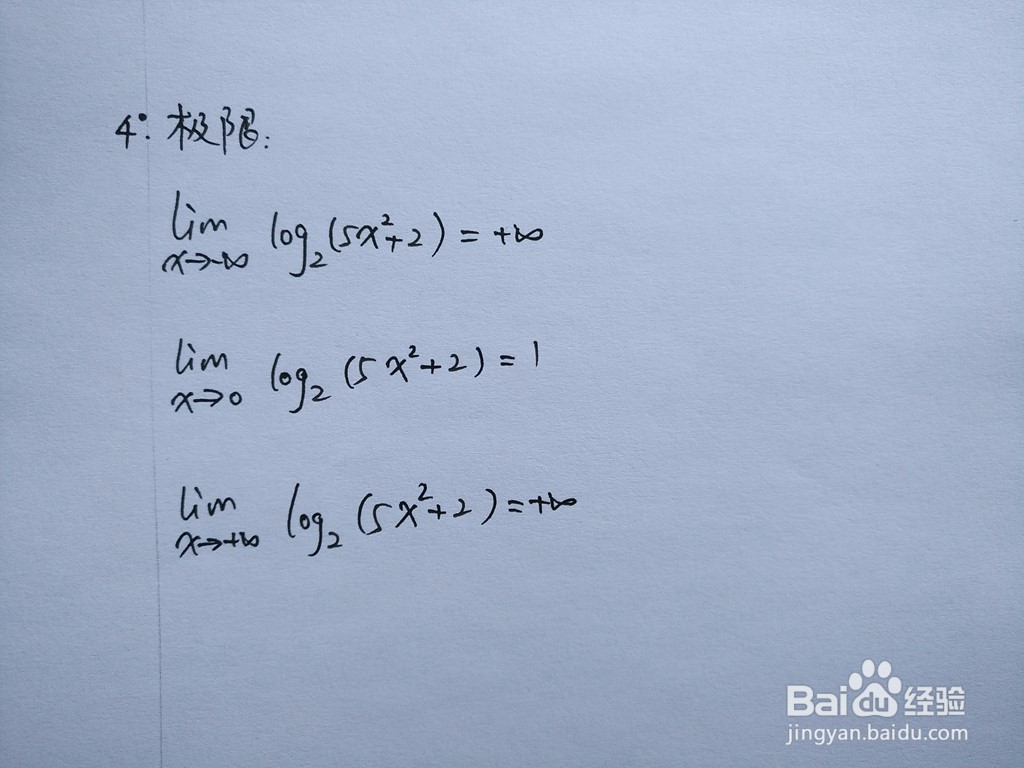 4°: 极限:
lim log₂(5x²+2) = +∞
x→-∞
lim log₂(5x²+2) = 1
x→0
lim log₂(5x²+2) = +∞
x→+∞
Baidu 经验
jingyan.baidu.com